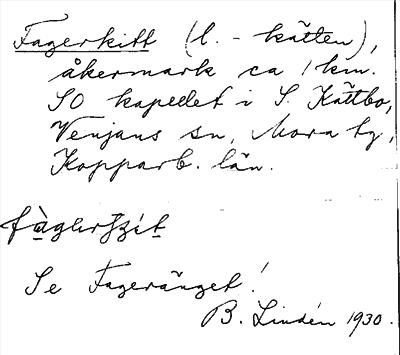 Fagerkitt (l. - kätten),
åkermark ca 1 km.
SO kapellet i S. Kättbo,
Venjans sn, Mora tg,
Kopparb. län.
Se Fageränget!
B. Lindén 1930.